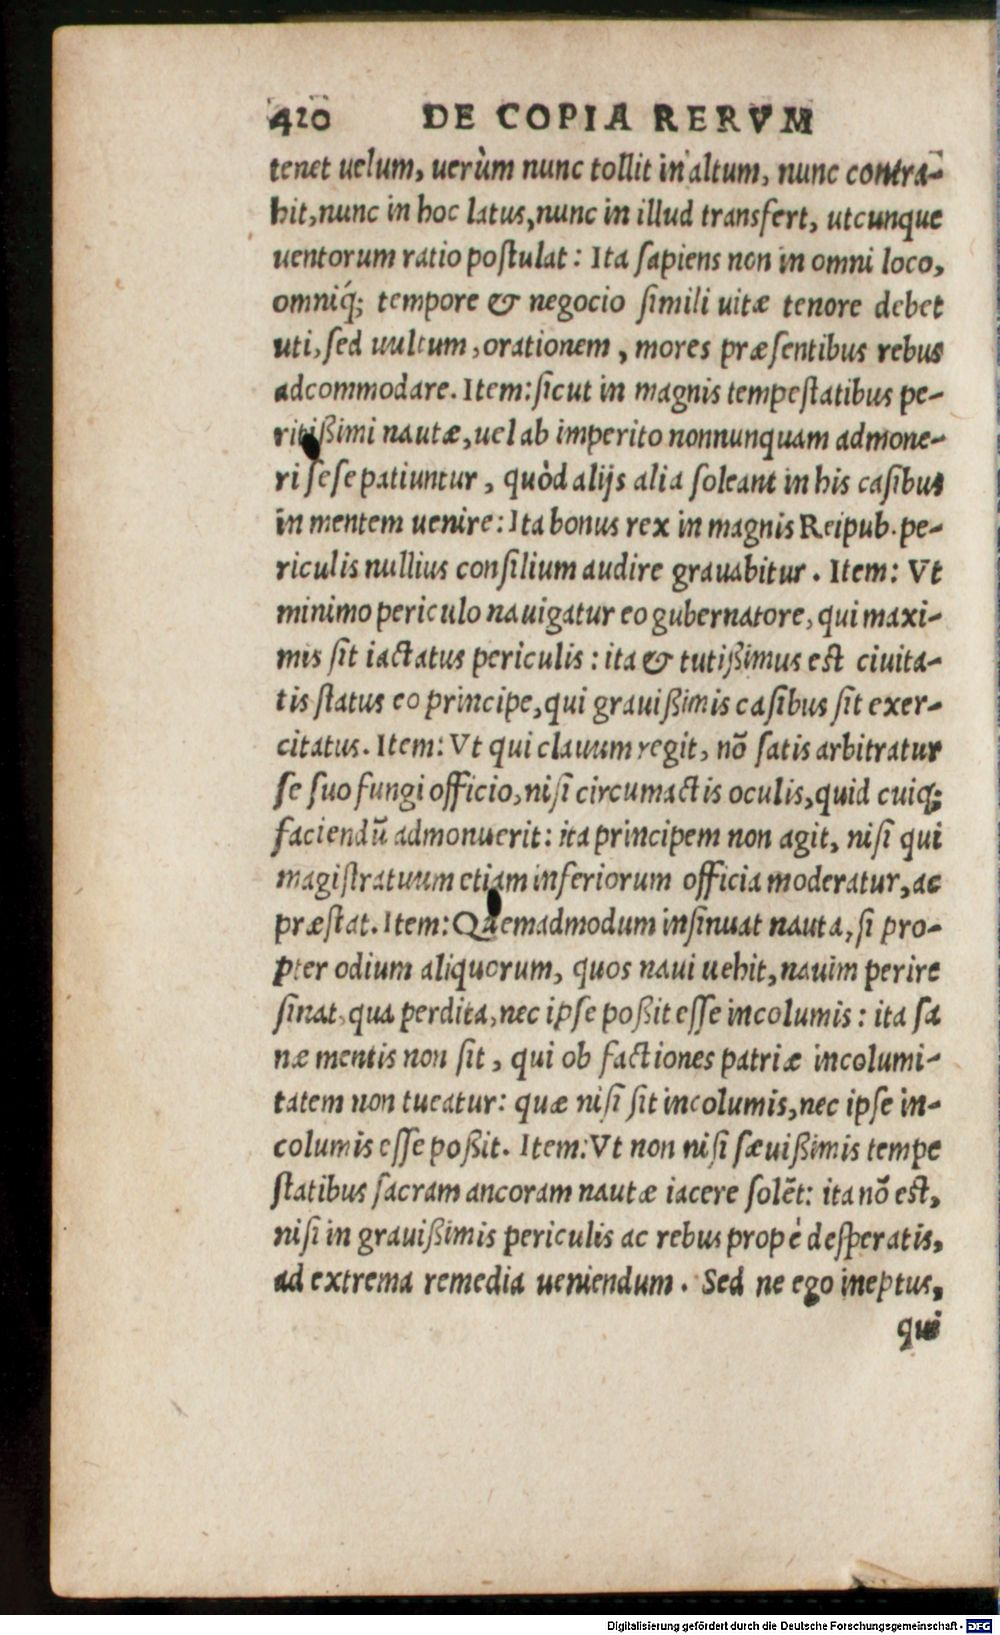 420 DE COPIA RERVM
tenet uelum, uerùm nunc tollit in altum, nunc contra-
hit, nunc in hoc latus, nunc in illud transfert, utcunque
uentorum ratio poſtulat: Ita ſapiens non in omni loco,
omniq́; tempore & negocio ſimili uitæ tenore debet
uti, ſed uultum, orationem, mores præſentibus rebus
adcommodare. Item: ſicut in magnis tempeſtatibus pe-
ritißimi nautæ, uel ab imperito nonnunquam admone-
ri ſeſe patiuntur, quòd alijs alia ſoleant in his caſibus
in mentem uenire: Ita bonus rex in magnis Reipub. pe-
riculis nullius conſilium audire grauabitur. Item: Vt
minimo periculo nauigatur eo gubernatore, qui maxi-
mis ſit iactatus periculis: ita & tutißimus eſt ciuita-
tis ſtatus eo principe, qui grauißimis caſibus ſit exer-
citatus. Item: Vt qui clauum regit, nō ſatis arbitratur
ſe ſuo fungi officio, niſi circumactis oculis, quid cuiq;
faciendū admonuerit: ita principem non agit, niſi qui
magiſtratuum etiam inferiorum officia moderatur, ac
præſtat. Item: Quemadmodum inſinuat nauta, ſi pro-
pter odium aliquorum, quos naui uehit, nauim perire
ſinat, qua perdita, nec ipſe poßit eſſe incolumis: ita ſa
næ mentis non ſit, qui ob factiones patriæ incolumi-
tatem non tueatur: quæ niſi ſit incolumis, nec ipſe in-
columis eſſe poßit. Item: Vt non niſi ſæuißimis tempe
ſtatibus ſacram ancoram nautæ iacere ſolēt: ita nō eſt,
niſi in grauißimis periculis ac rebus propè deſperatis,
ad extrema remedia ueniendum. Sed ne ego ineptus,
qui
Digitalisierung gefördert durch die Deutsche Forschungsgemeinschaft - DFG